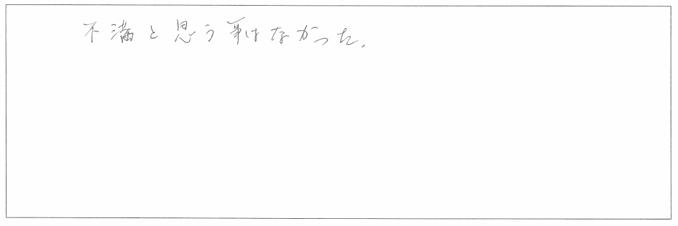 不満と思う事はなかった.